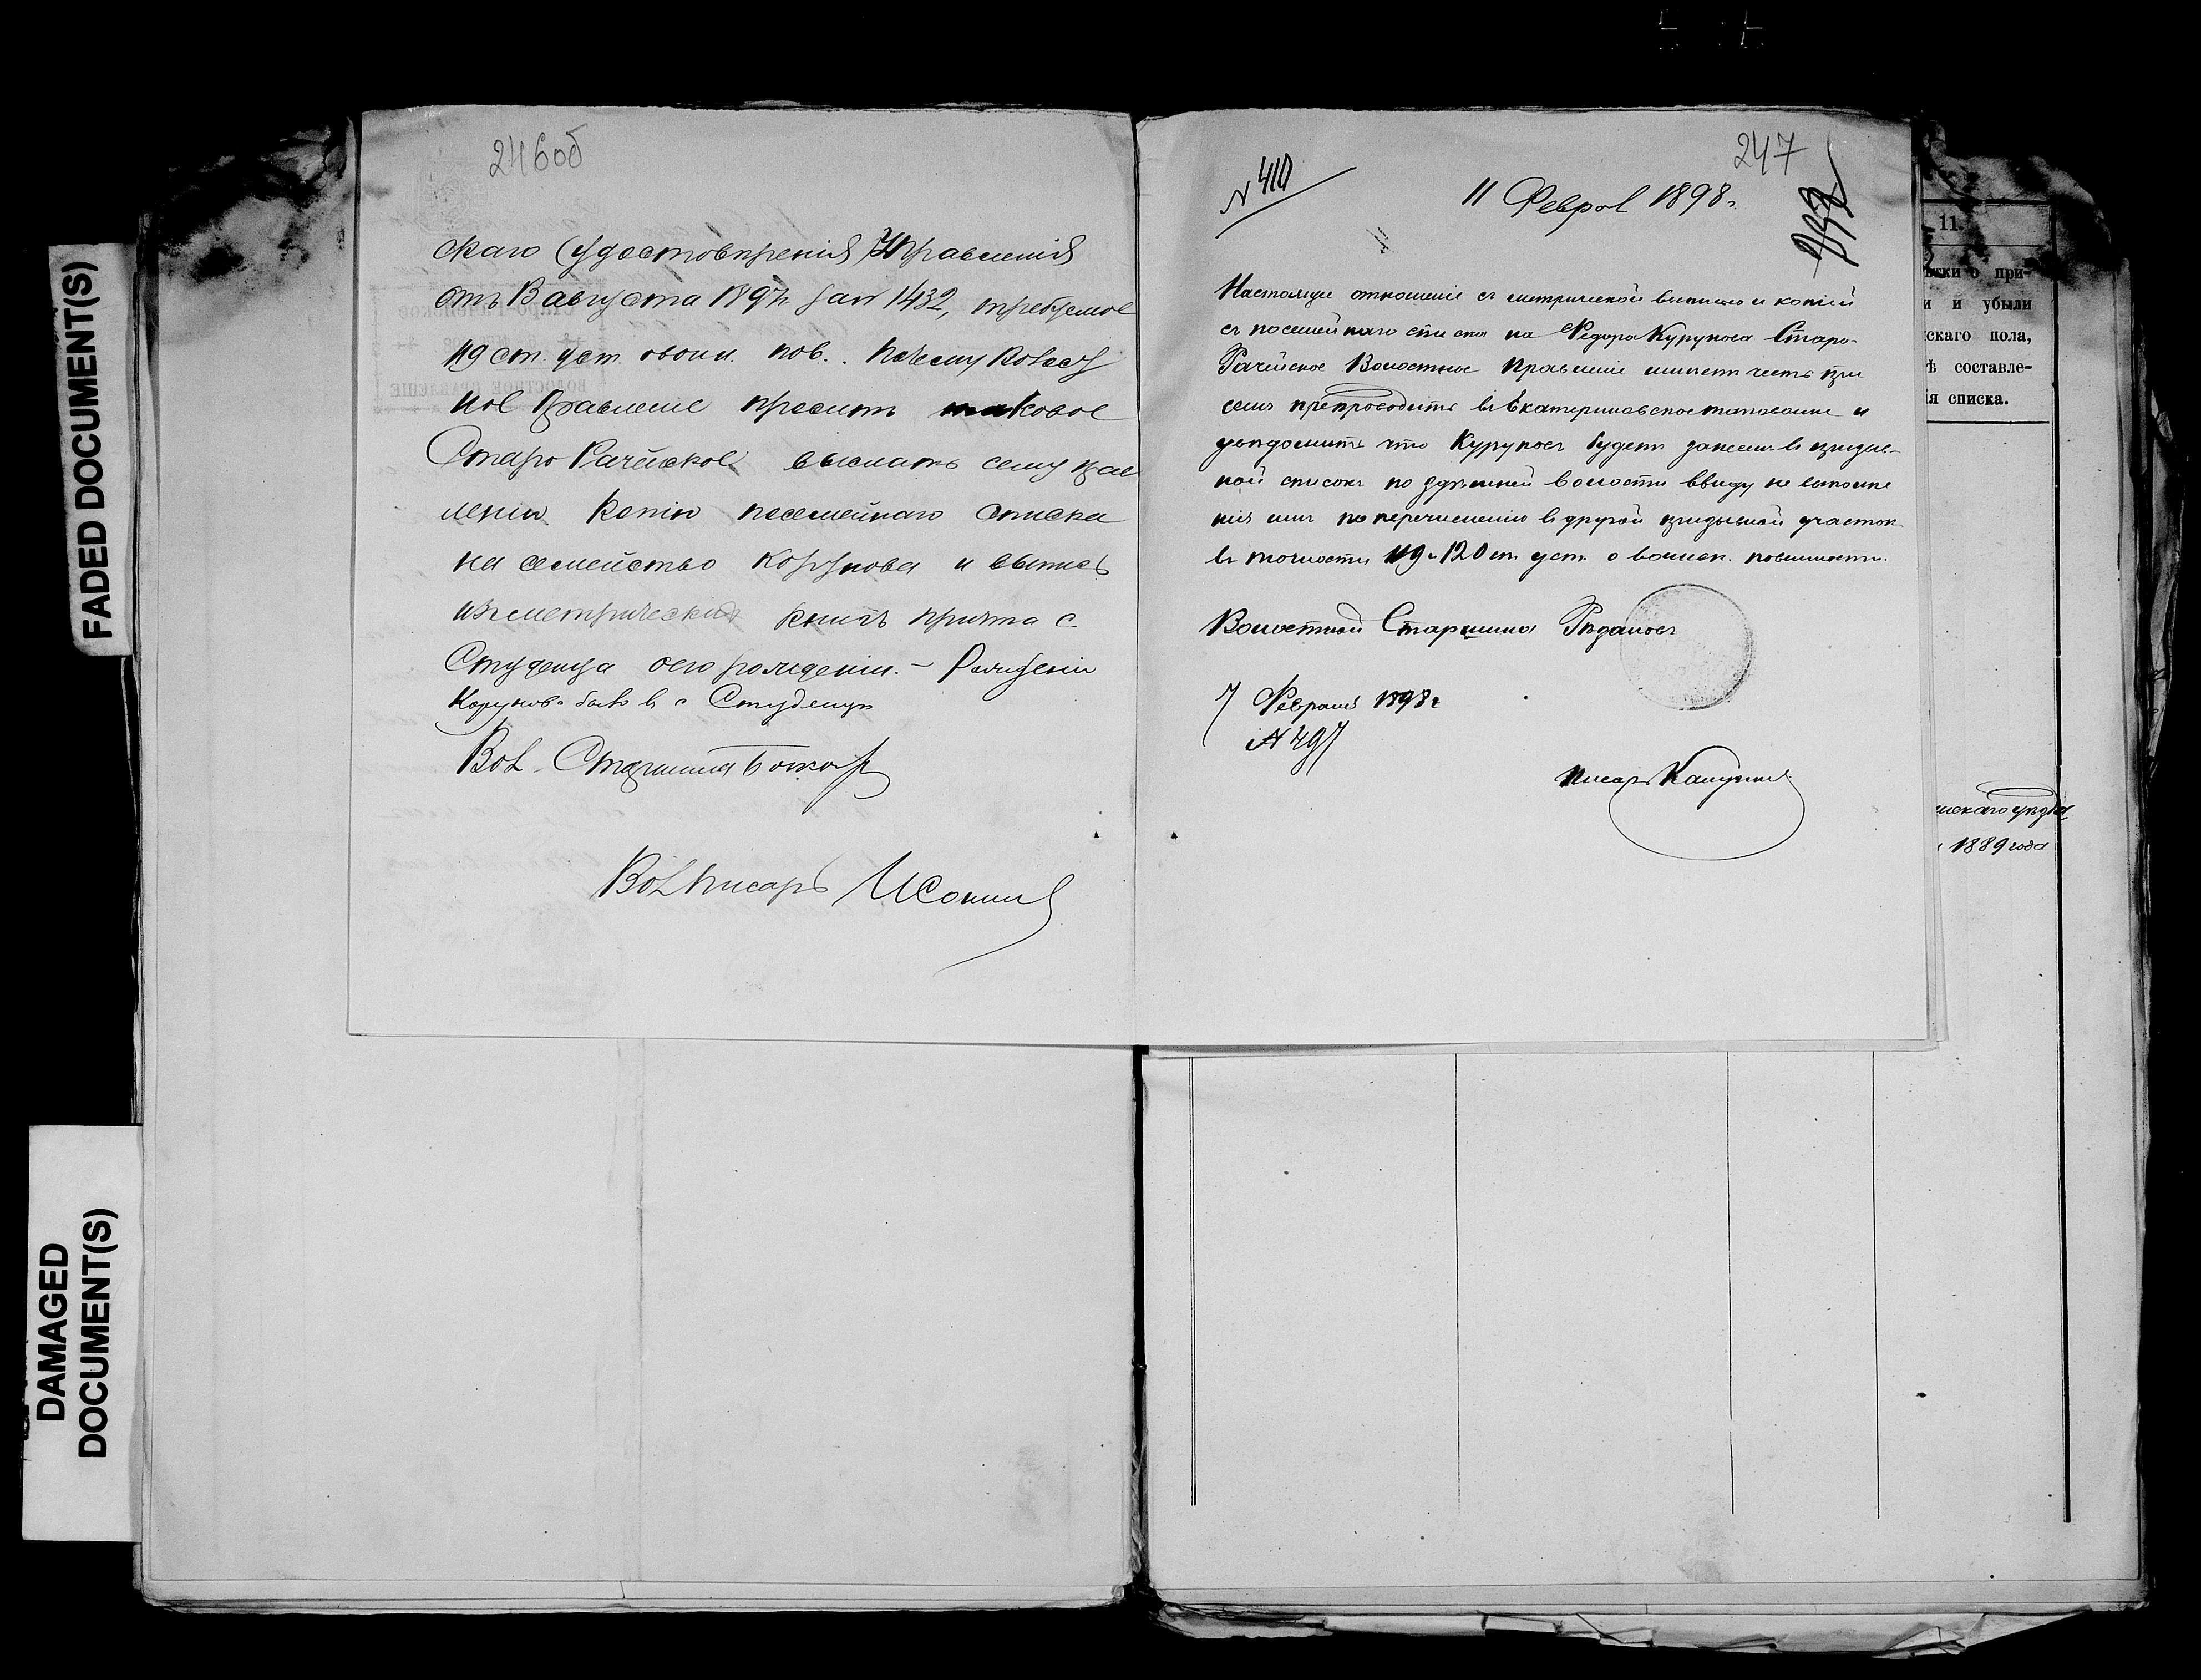 FADED DOCUMENT(S)
DAMAGED
DOCUMENT(S)
246об
скаго Удостовѣренія Управленія
отъ 13 августа 1897г за № 1432, требуемое
119 ст. уст. овоин. пов. почему Волост
ное Правленіе проситъ таковое
Старо Рачейское выслать сему прав
ленію копію посемейнаго списка
на семейство Корунова и выпись
изъ метрическихъ книгъ причта с.
Студенца о его рожденіи. — Рожденіи
Корунова было въ с Студенцѣ
Вол. Старшина
Вол Писарь
247
№ 410
11 Феврал 1898г.
Настоящее отношеніе съ метрической выписью и копіей
съ посемейнаго списка на Федора Курунова Старо-
Рачейское Волостное Правленіе имѣетъ честь при
семъ препроводить въ Екатериновское таковое и
увѣдомить что Куруновъ будетъ занесенъ въ призыв-
ной списокъ по здѣшней волости ввиду не выполне
нія имъ по перечисленію въ другой призывной участокъ
въ точности 119 и 120 ст. уст. о воинск. повинности.
Волостной Старшина
7 Февраля 1898г
№ 497
Писарь
11.
ѣтки о при-
и и убыли
скаго пола,
ѣ составле-
ія списка.
скаго уѣзда,
1889 года